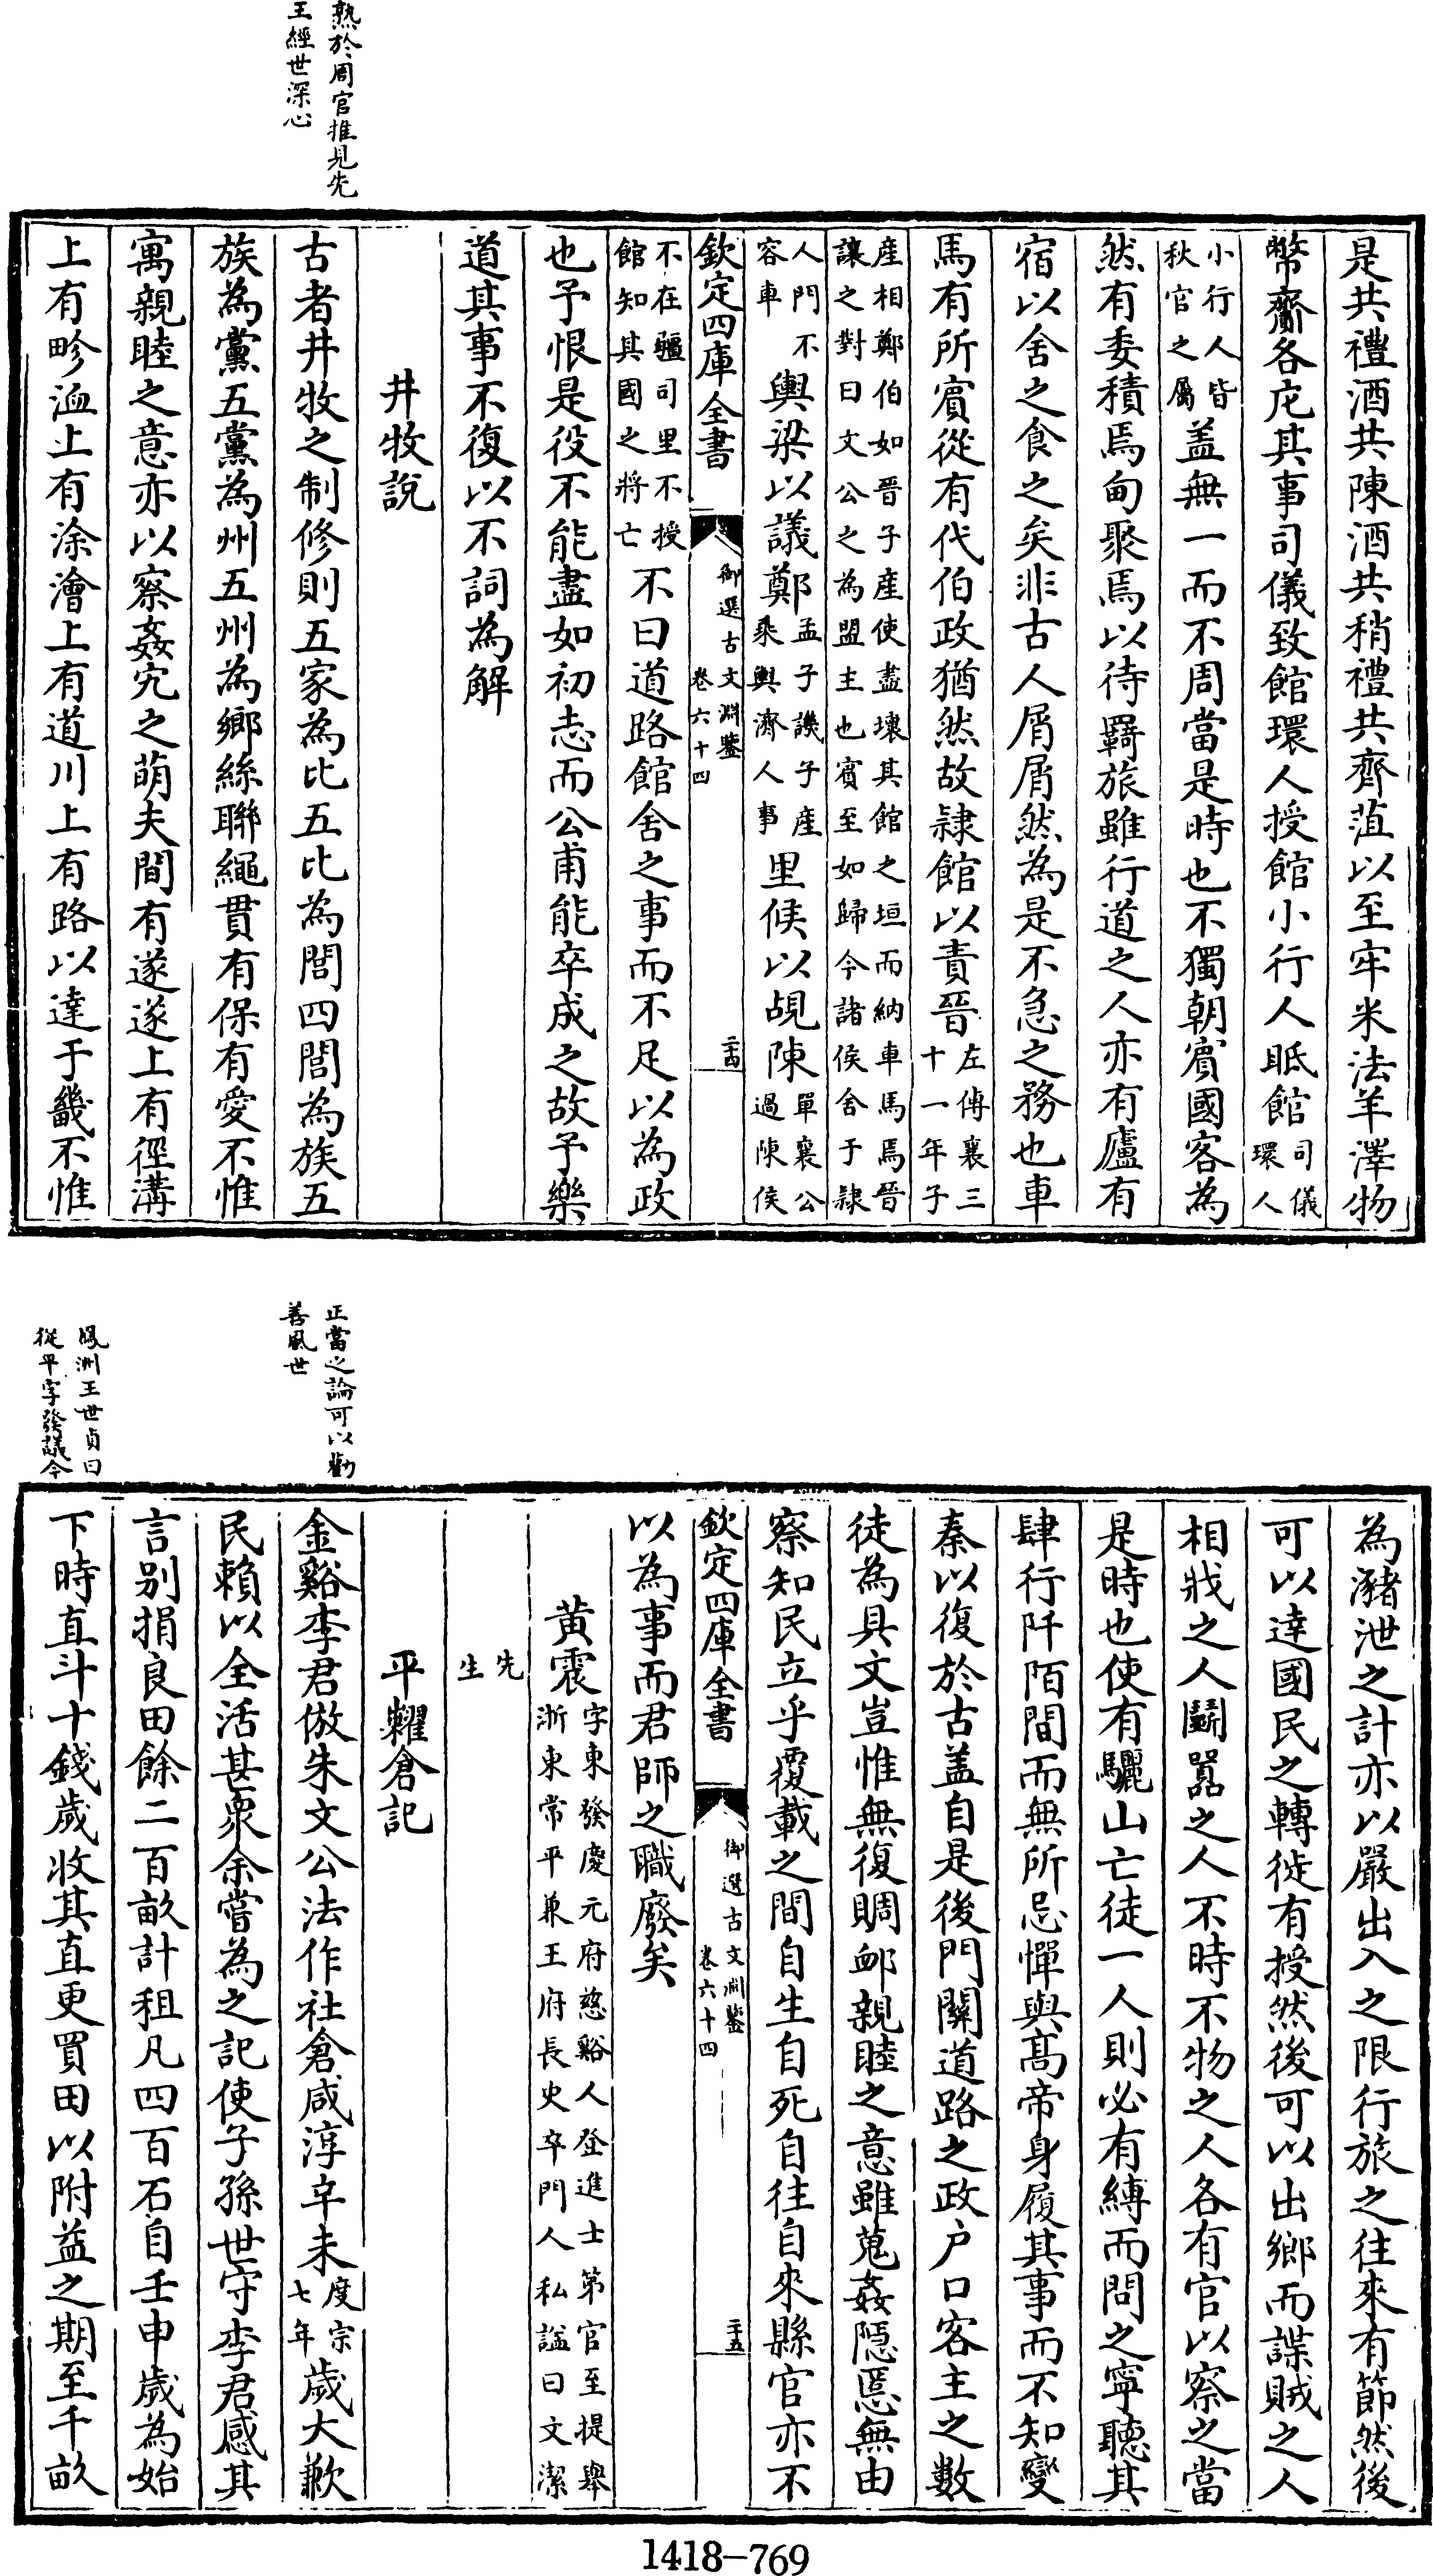 是共禮酒共陳酒共稍禮共齊菹以至牢米法羊澤物
幣齎各庀其事司儀致館環人授館小行人眂館司儀環人
小行人皆秋官之屬盖無一而不周當是時也不獨朝賔國客為
然有委積焉甸聚焉以待羇旅雖行道之人亦有廬有
宿以舍之食之矣非古人屑屑然為是不急之務也車
馬有所賔從有代伯政猶然故隷館以責晉左傳襄三十一年子
産相鄭伯如晉子産使盡壊其館之垣而納車馬焉晉
讓之對曰文公之為盟主也賔至如歸今諸侯舍于隷
人門不容車輿梁以議鄭孟子譏子産乘輿濟人事里候以覘陳單襄公過陳侯
欽定四庫全書
御選古文淵鑒
卷六十四
二十四
不在疆司里不授館知其國之将亡不曰道路館舍之事而不足以為政
也予恨是役不能盡如初志而公甫能卒成之故予樂
道其事不復以不詞為解
井牧說
熟於周官推見先
王經世深心
古者井牧之制修則五家為比五比為閭四閭為族五
族為黨五黨為州五州為鄉絲聯繩貫有保有愛不惟
寓親睦之意亦以察姦宄之萌夫間有遂遂上有徑溝
上有畛洫上有涂澮上有道川上有路以達于畿不惟
為瀦泄之計亦以嚴出入之限行旅之往來有節然後
可以達國民之轉徙有授然後可以出鄉而諜賊之人
相戕之人鬭囂之人不時不物之人各有官以察之當
是時也使有驪山亡徒一人則必有縛而問之寧聽其
肆行阡陌間而無所忌憚與髙帝身履其事而不知變
秦以復於古盖自是後門關道路之政户口客主之數
徒為具文豈惟無復賙䘏親睦之意雖蒐姦隠慝無由
察知民立乎覆載之間自生自死自往自來縣官亦不
欽定四庫全書
御選古文淵鑒
卷六十四
二十五
以為事而君師之職廢矣
黄震字東發慶元府慈谿人登進士第官至提舉
浙東常平兼王府長史卒門人私諡曰文潔
先生
平糶倉記
正當之論可以勸
善風世
金谿李君倣朱文公法作社倉咸淳辛未度宗七年歲大歉
民賴以全活甚衆余嘗為之記使子孫世守李君感其
言别捐良田餘二百畝計租凡四百石自壬申歲為始
鳳洲王世貞曰
從平字發議今
下時直斗十錢歲收其直更買田以附益之期至千畝
1418-769